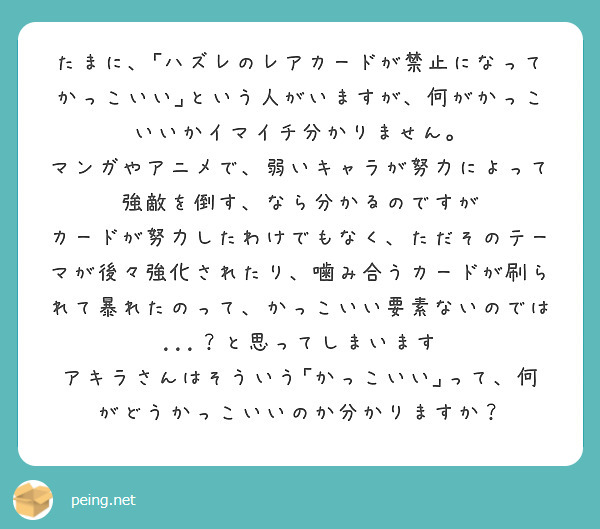 たまに、「ハズレのレアカードが禁止になって
かっこいい」という人がいますが、何がかっこ
いいかイマイチ分かりません。
マンガやアニメで、弱いキャラが努力によって
強敵を倒す、なら分かるのですが
カードが努力したわけでもなく、ただそのテー
マが後々強化されたり、噛み合うカードが刷ら
れて暴れたのって、かっこいい要素ないのでは
...？と思ってしまいます
アキラさんはそういう「かっこいい」って、何
がどうかっこいいのか分かりますか？
peing.net